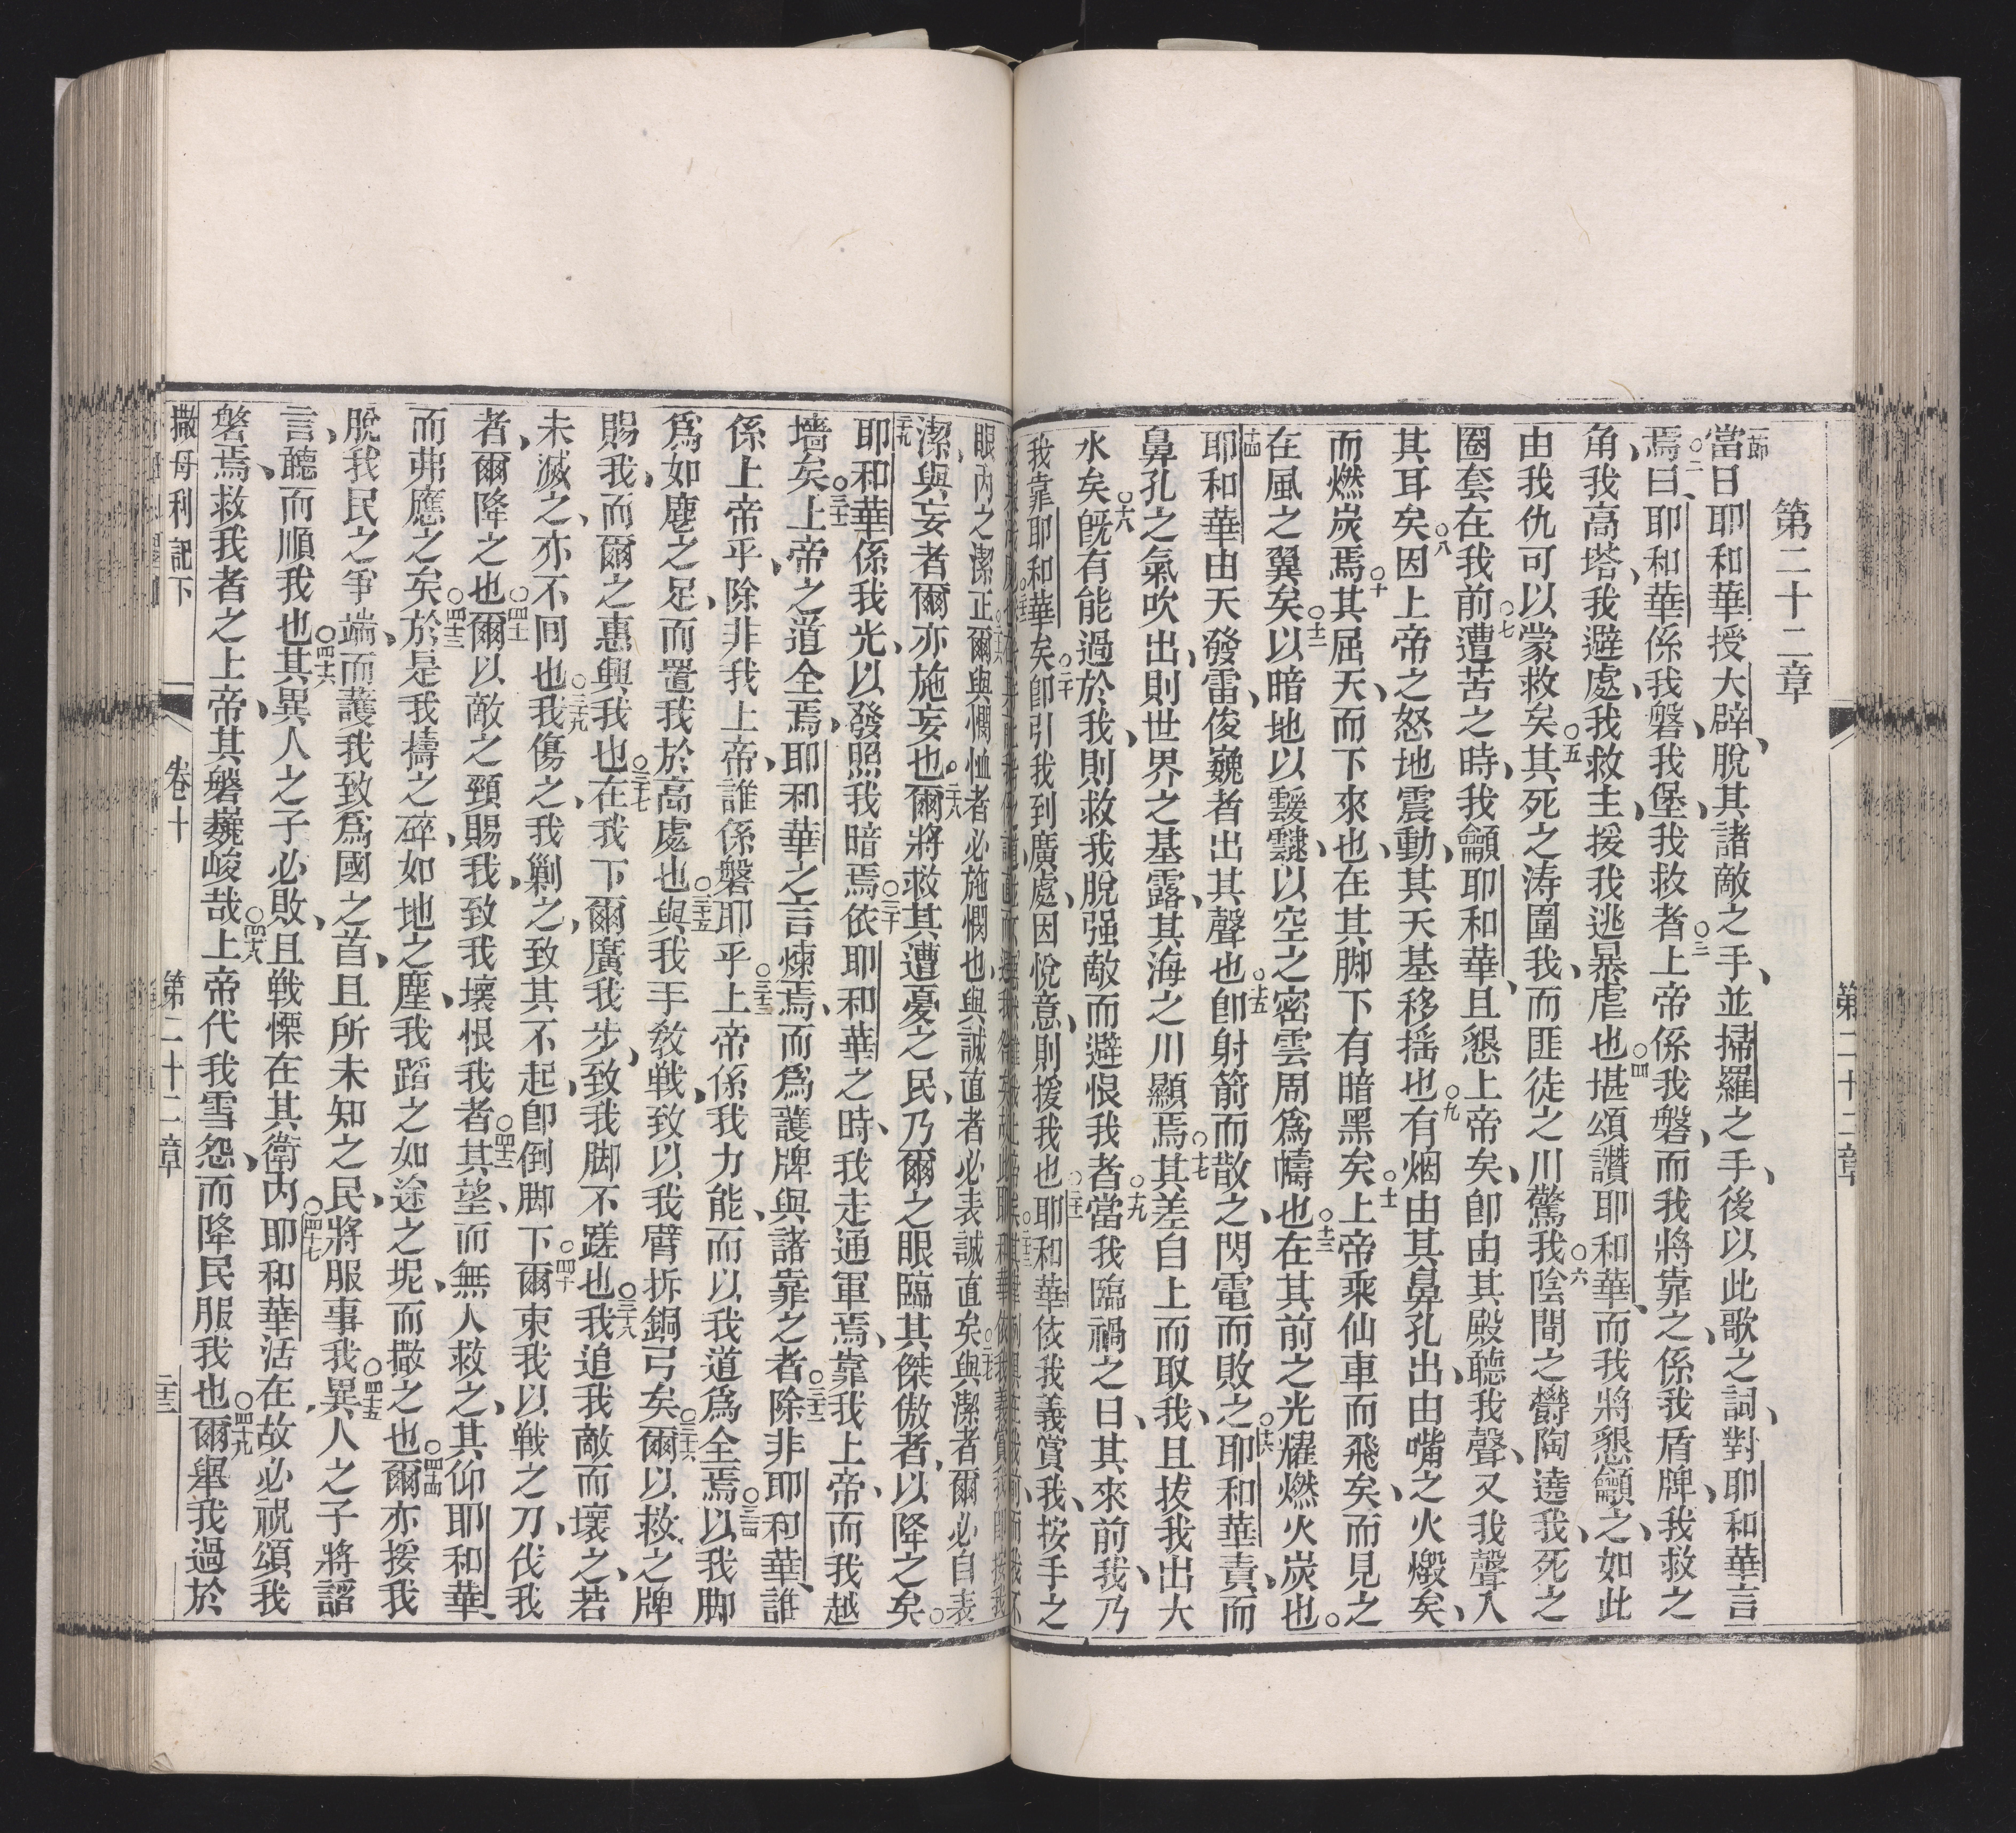 第二十二章
一節當日耶和華授大辟、脫其諸敵之手、並掃羅之手、後以此歌之詞、對耶和華言
焉。○二曰、耶和華係我磐、我堡、我救者。○三上帝係我磐、而我將靠之、係我盾牌、我救之
角、我高塔、我避處、我救主、援我逃暴虐也。○四堪頌讚耶和華、而我將懇籲之、如此
由我仇可以蒙救矣。○五其死之涛圍我、而匪徒之川驚我。○六陰間之欝陶遶我、死之
圈套在我前。○七遭苦之時、我籲耶和華、且懇上帝矣、卽由其殿聽我聲、又我聲入
其耳矣。○八因上帝之怒地震動、其天基移搖也。○九有烟由其鼻孔出、由嘴之火燬矣、
而燃炭焉。○十其屈天、而下來也、在其脚下有暗黑矣。○十一上帝乘仙車而飛矣、而見之
在風之翼矣。○十二以暗地以靉靆、以空之密雲周爲幬也。○十三在其前之光燿燃火炭也。○
十四耶和華由天發雷、俊巍者出其聲也。○十五卽射箭而散之、閃電而敗之。○十六耶和華責、而
鼻孔之氣吹出、則世界之基露、其海之川顯焉。○十七其差自上而取我、且拔我出大
水矣。○十八旣有能過於我、則救我脫强敵而避恨我者。○十九當我臨禍之日、其來前我、乃
我靠耶和華矣。○二十卽引我到廣處、因悅意、則援我也。○二十一耶和華依我義賞我、按手之
眼內之潔正。○二十六爾與憫恤者必施憫也、與誠直者必表誠直矣。○二十七與潔者爾必自表
潔、與妄者爾亦施妄也。○二十八爾將救其遭憂之民、乃爾之眼臨其傑傲者、以降之矣。○
二十九耶和華係我光、以發照我暗焉。○三十依耶和華之時、我走通軍焉、靠我上帝、而我越
墻矣。○三十一上帝之道全焉、耶和華之言煉焉、而爲護牌與諸靠之者。○三十二除非耶和華、誰
係上帝乎、除非我上帝、誰係磐耶乎。○三十三上帝係我力能、而以我道爲全焉。○三十四以我脚
爲如麀之足、而置我於高處也。○三十五與我手敎戰、致以我臂拆銅弓矣。○三十六爾以救之牌
賜我、而爾之惠興我也。○三十七在我下爾廣我步、致我脚不蹉也。○三十八我追我敵而壞之、若
未滅之、亦不囘也。○三十九我傷之、我剿之、致其不起、卽倒脚下。○四十爾束我以戰之刀、伐我
者、爾降之也。○四十一爾以敵之頸賜我、致我壞恨我者。○四十二其望、而無人救之、其仰耶和華、
而弗應之矣。○四十三於是我擣之碎、如地之塵、我蹈之如途之坭、而撒之也。○四十四爾亦按我
脫我民之爭端、而護我致爲國之首、且所未知之民、將服事我。○四十五異人之子將謟
言、聽而順我也。○四十六其異人之子必敗、且戰慄在其衛內。○四十七耶和華活在、故必祝頌我
磐焉、救我者之上帝、其磐巍峻哉。○四十八上帝代我雪怨、而降民服我也。○四十九爾舉我過於
撒母利記下 卷十 第二十二章 二十三